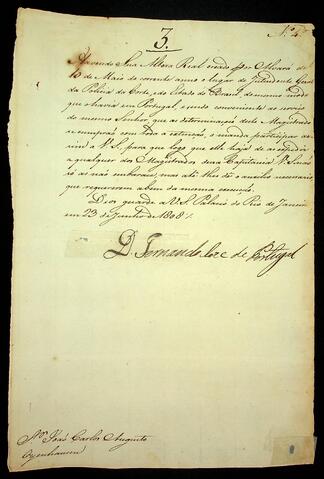 N.º 4.
3.
Havendo Sua Alteza Real creado por Alvará de
10 de Maio do corrente anno o lugar de Intendente Geral
da Policia da Corte, e do Estado do Brasil, do mesmo modo
que o havia em Portugal, e sendo conveniente ao serviço
do mesmo Senhor, que as determinações deste Magistrado
se cumprão com toda a
participar
a V. S. para que logo que elle haja de as expedir
a qualquer dos Magistrados dessa Capitania V. S. não
só as não embarace, mas até lhes dê o auxilio necessario
que requererem a bem da mesma execução.
Deos guarde a V. S. Palacio do Rio de Janeiro
em 23 de Junho de 1808
D. Fernando Joze de Portugal
Snr. João Carlos Augusto
Oyenhausen